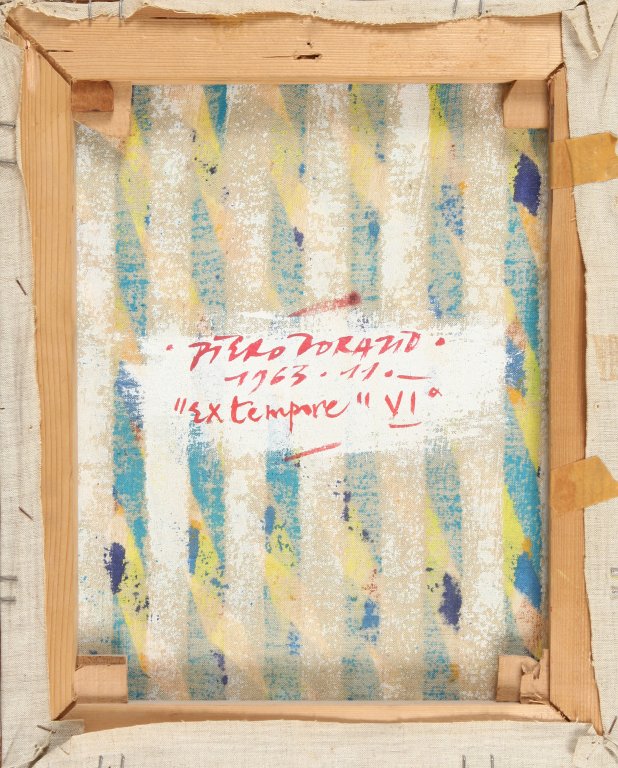 · PIERO DORAZIO ·
1963 · 11 · –
"extempore" VIª